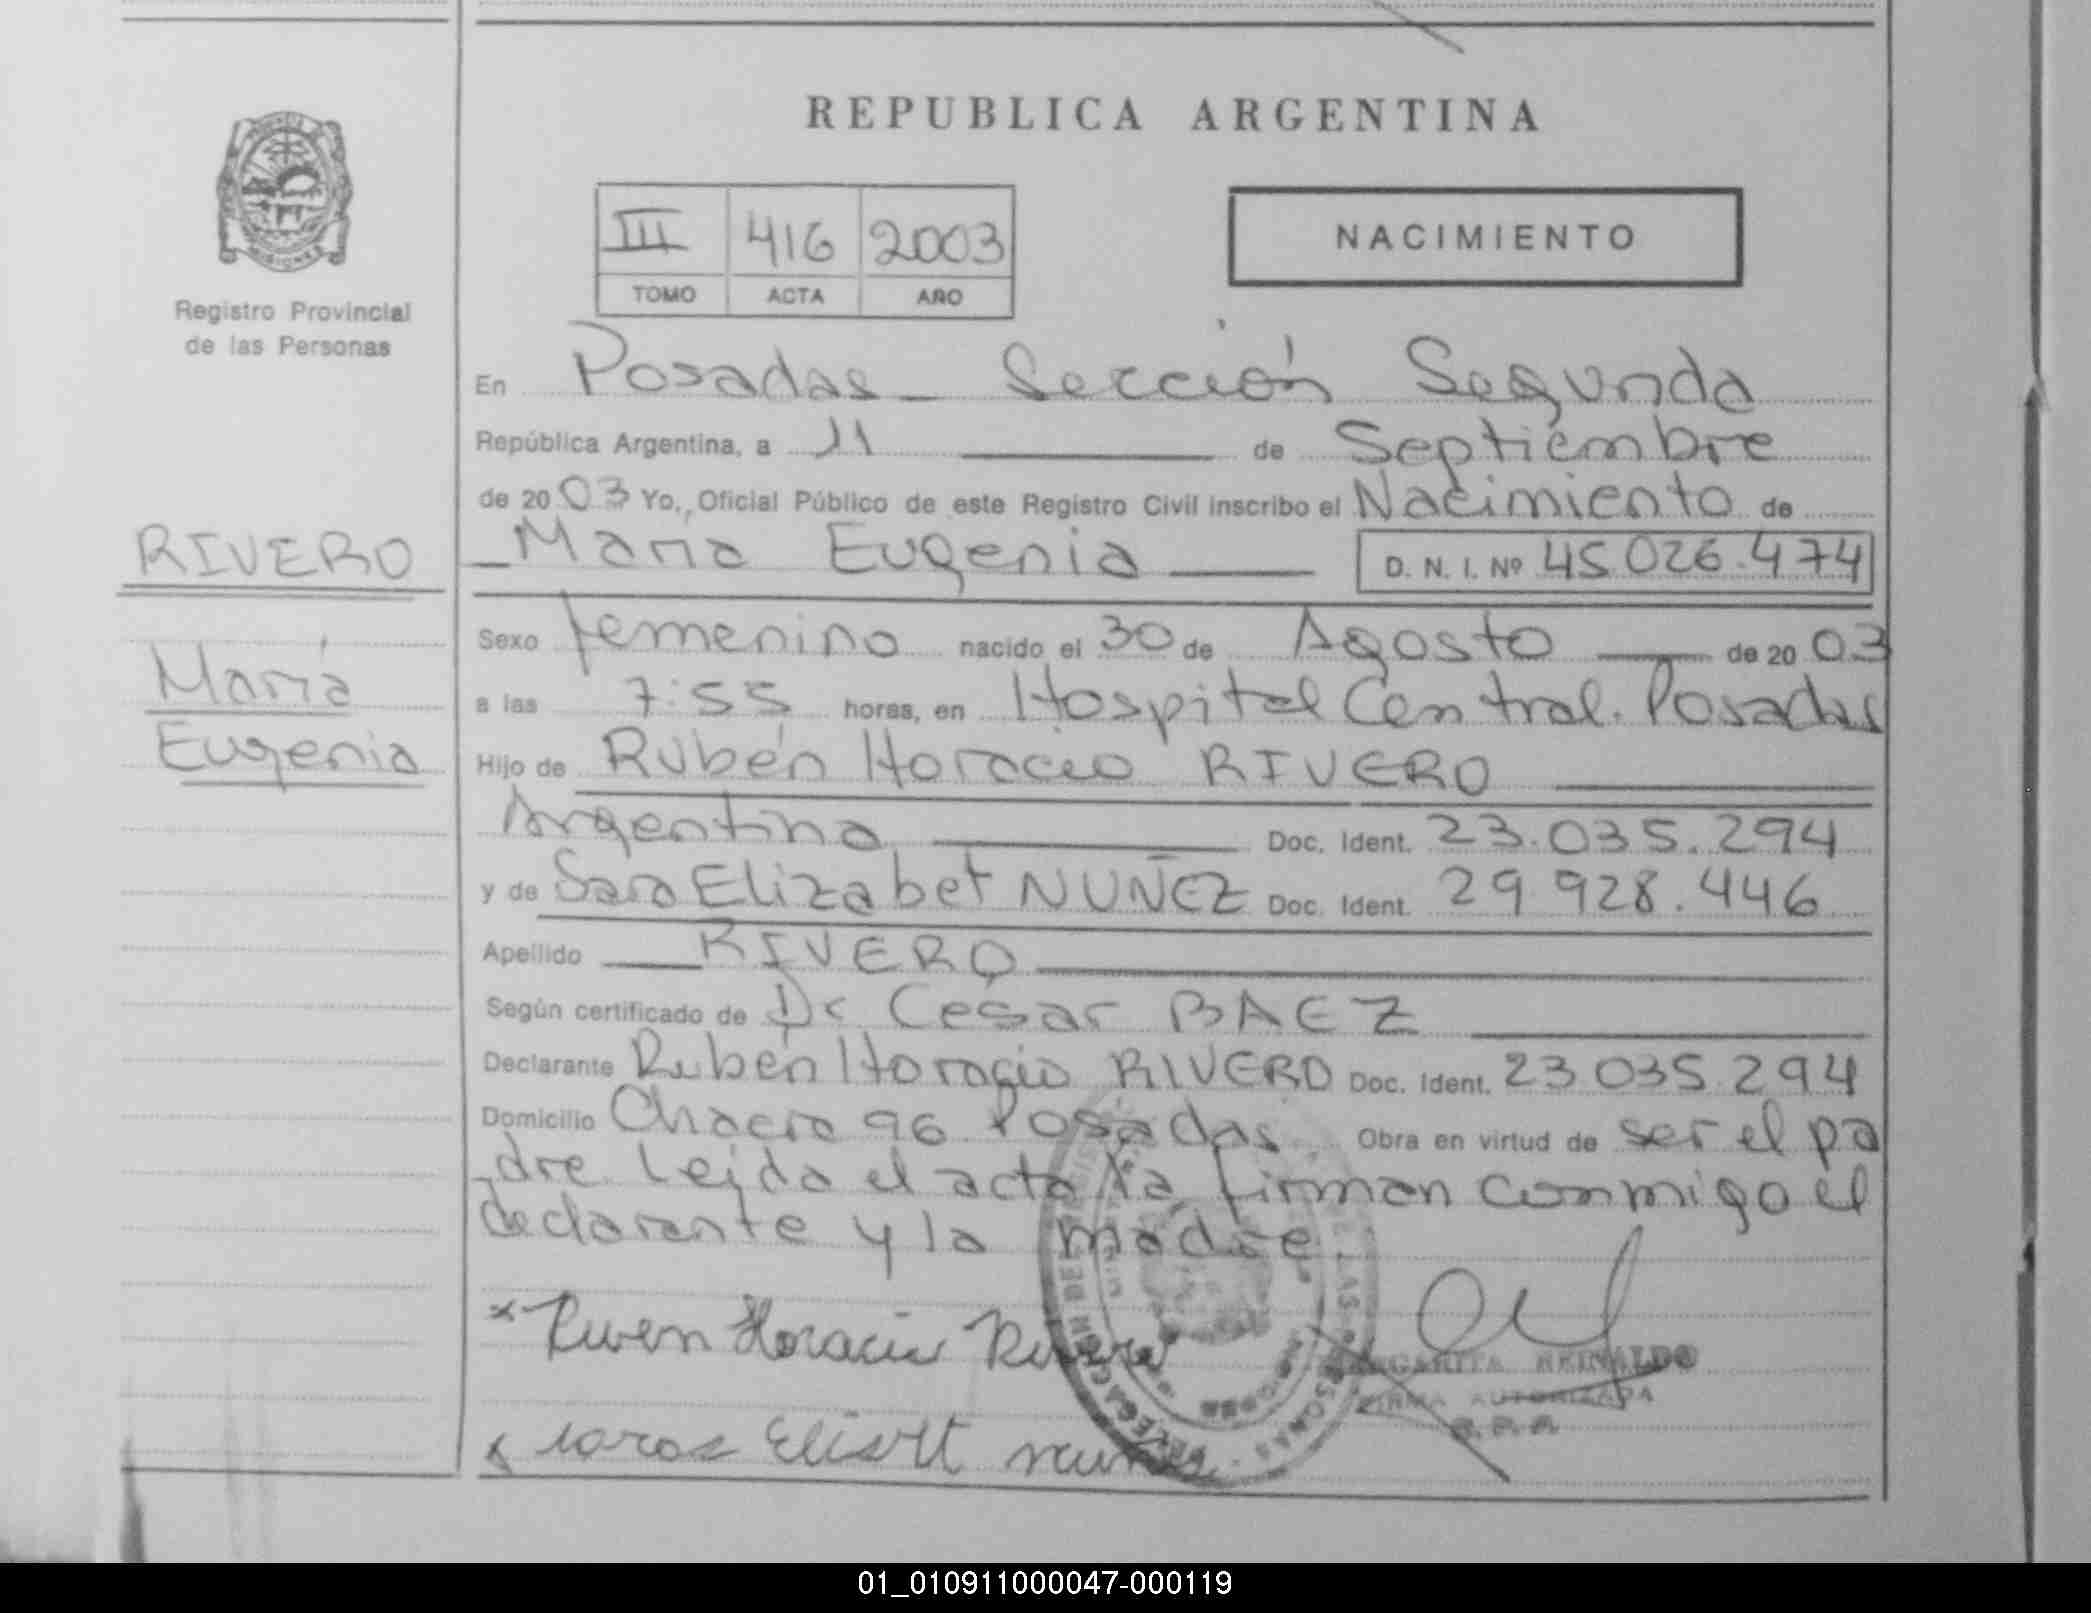 REPUBLICA ARGENTINA
PROVINCIA DE MISIONES
Registro Provincial
de las Personas
III 416 2003
TOMO ACTA AÑO
NACIMIENTO
En Posadas - Sección Segunda
República Argentina, a 11 de Septiembre
de 2003 Yo, Oficial Público de este Registro Civil inscribo el Nacimiento de
RIVERO
Maria Eugenia D. N. I. Nº 45.026.474
Sexo femenino nacido el 30 de Agosto de 2003
María
a las 7:55 horas, en Hospital Central. Posadas
Eugenia
Hijo de Rubén Horacio RIVERO
Argentina Doc. Ident. 23.035.294
y de Sara Elizabet NUÑEZ Doc. Ident. 29.928.446
Apellido RIVERO
Según certificado de Dr Cesar BAEZ
Declarante Rubén Horacio RIVERO Doc. Ident. 23.035.294
Domicilio Chacra 96 Posadas Obra en virtud de ser el pa
dre. Leída el acta la firman conmigo el
declarante y la madre.
x Ruven Horacio Rivero
MARGARITA REINALDO
FIRMA AUTORIZADA
R. P. P.
x
01_010911000047-000119